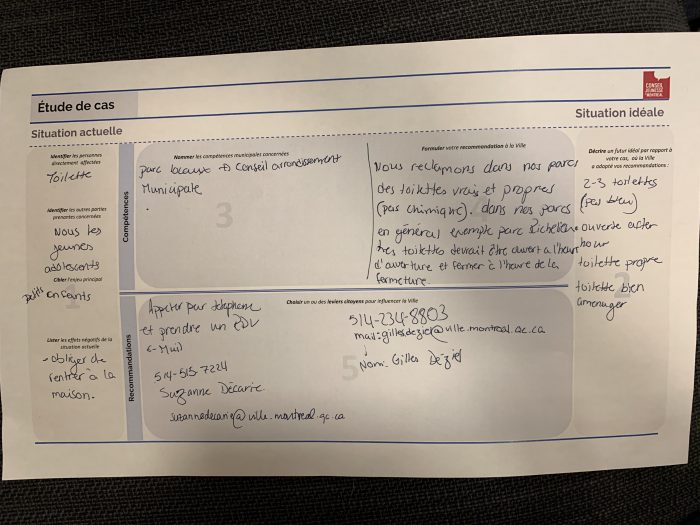 CONSEIL
JEUNESSE
DE MONTRÉAL
Étude de cas
Situation actuelle
Situation idéale
Identifier les personnes
directement affectées
Toilette
Identifier les autres parties
prenantes concernées
Nous les
jeunes
adolescents
Cibler l'enjeu principal
petits enfants
Lister les effets négatifs de la
situation actuelle
- obliger de
rentrer à la
maison.
Compétences
Nommer les compétences municipales concernées
parc locaux → Conseil arrondissement
Municipale
3
Formuler votre recommandation à la Ville
Nous reclamons dans nos parcs
des toilettes vrais et propres
(pas chimique). dans nos parcs
en général exemple parc Richelieu
les toilettes devrait être ouvert a l'heure
d'ouverture et fermer à l'heure de la
fermeture.
Décrire un futur idéal par rapport à
votre cas, où la Ville
a adopté vos recommandations :
2-3 toilettes
(pas bleu)
ouverte
hour
toilette propre
toilette bien
amenager
Recommandations
Choisir un ou des leviers citoyens pour influencer la Ville
Appeler par telephone
et prendre un RDV
514-515-7224
Suzanne Décarie
suzannedecarie@ville.montreal.qc.ca
5
514-234-8803
mail:gillesdeziel@ville.montreal.qc.ca
↓
Nom: Gilles Déziel